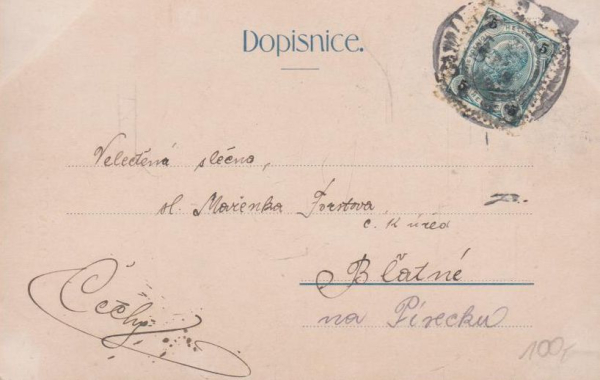 Dopisnice.
5 5
Velectěná slečno,
sl. Mařenka
c. k úřed
Blatné
na Písecku
Čechy
100,-